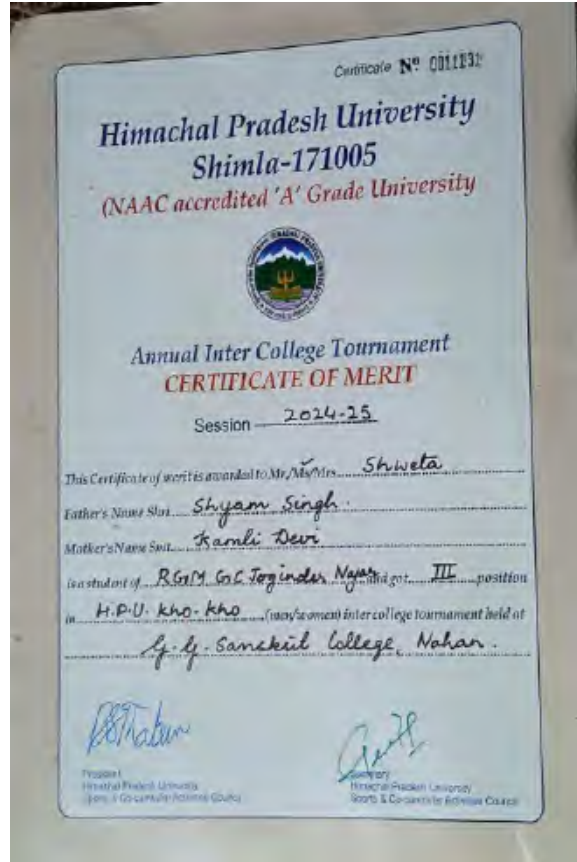 Certificate Nº
Himachal Pradesh University
Shimla-171005
(NAAC accredited 'A' Grade University
Annual Inter College Tournament
CERTIFICATE OF MERIT
Session 2024-25
This Certificate of merit is awarded to Mr./Ms/Mrs. Shweta
Father's Name Shri Shyam Singh
Mother's Name Smt. Kamli Devi
is a student of RGM GC Joginder Nagar and got III position
in H.P.U. Kho-Kho (men/women) inter college tournament held at
College, Nahan.
President
Himachal Pradesh University
Sports & Co-curricular Activities Council
Secretary
Himachal Pradesh University
Sports & Co-curricular Activities Council